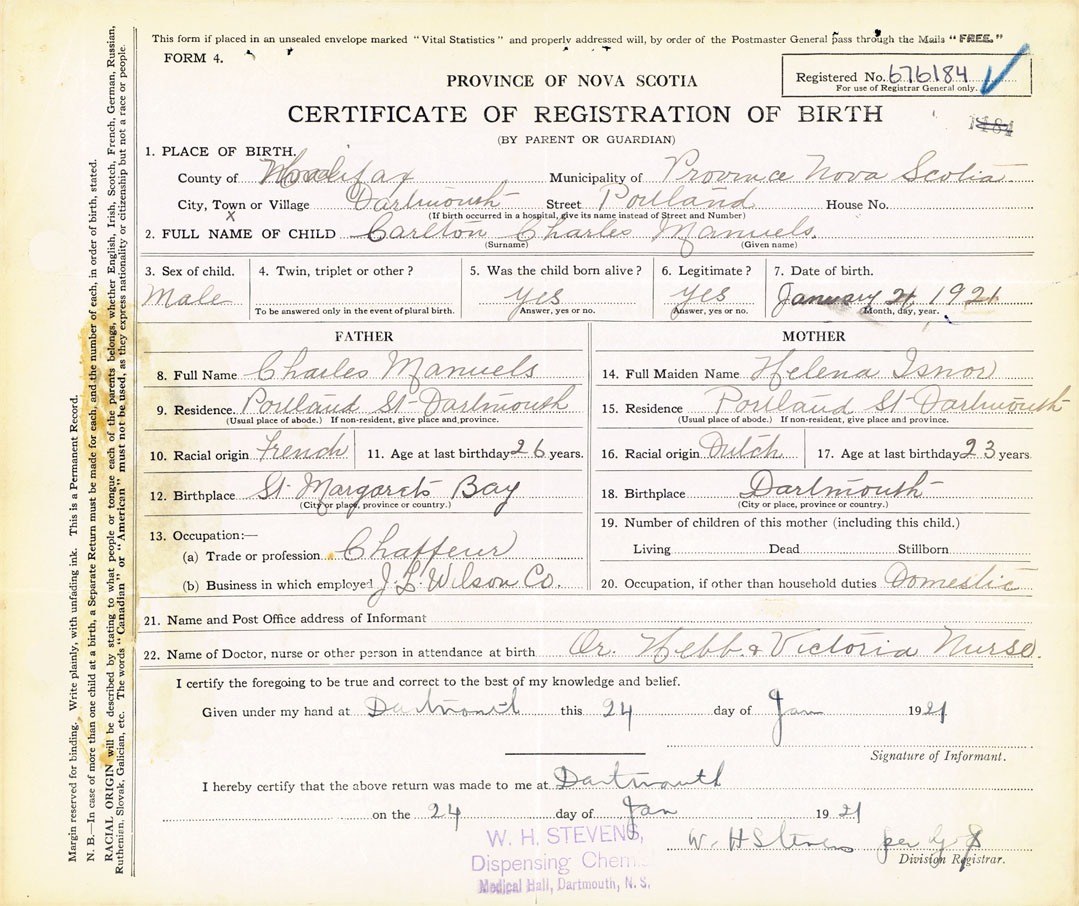 This form if placed in an unsealed envelope marked "Vital Statistics" and properly addressed will, by order of the Postmaster General pass through the Mails "FREE."
FORM 4.
Registered No. 676184
For use of Registrar General only.
PROVINCE OF NOVA SCOTIA
CERTIFICATE OF REGISTRATION OF BIRTH
(BY PARENT OR GUARDIAN)
1. PLACE OF BIRTH.
County of Halifax Municipality of Province Nova Scotia
City, Town or Village Dartmouth Street Portland House No.
x
(If birth occurred in a hospital, give its name instead of Street and Number)
2. FULL NAME OF CHILD Carlton Charles Manuels.
(Surname) (Given name)
3. Sex of child. 4. Twin, triplet or other? 5. Was the child born alive? 6. Legitimate? 7. Date of birth.
Male yes yes January 21, 1921
To be answered only in the event of plural birth. Answer, yes or no. Answer, yes or no. Month, day, year.
FATHER MOTHER
8. Full Name Charles Manuels 14. Full Maiden Name Helena Isnor
9. Residence. Portland St Dartmouth 15. Residence Portland St Dartmouth
(Usual place of abode.) If non-resident, give place and province. (Usual place of abode.) If non-resident, give place and province.
10. Racial origin French 11. Age at last birthday 26 years. 16. Racial origin Dutch 17. Age at last birthday 23 years.
12. Birthplace St Margarets Bay 18. Birthplace Dartmouth
(City or place, province or country.) (City or place, province or country.)
13. Occupation:— 19. Number of children of this mother (including this child.)
(a) Trade or profession Chaffeur Living Dead Stillborn
(b) Business in which employed J. L. Wilson Co. 20. Occupation, if other than household duties Domestic
21. Name and Post Office address of Informant
22. Name of Doctor, nurse or other person in attendance at birth Dr. Hebb & Victoria Nurse.
I certify the foregoing to be true and correct to the best of my knowledge and belief.
Given under my hand at Dartmouth this 24 day of Jan 1921
Signature of Informant.
I hereby certify that the above return was made to me at Dartmouth
on the 24 day of Jan 1921
W. H. STEVENS,
W. H Stevens per
Dispensing Chem
Division Registrar.
Medical Hall, Dartmouth, N. S.
Margin reserved for binding. Write plainly, with unfading ink. This is a Permanent Record.
N. B.—In case of more than one child at a birth, a Separate Return must be made for each, and the number of each, in order of birth, stated.
RACIAL ORIGIN will be described by stating to what people or tongue each of the parents belongs, whether English, Irish, Scotch, French, German, Russian,
Ruthenian, Slovak, Galician, etc. The words "Canadian" or "American" must not be used, as they express nationality or citizenship but not a race or people.